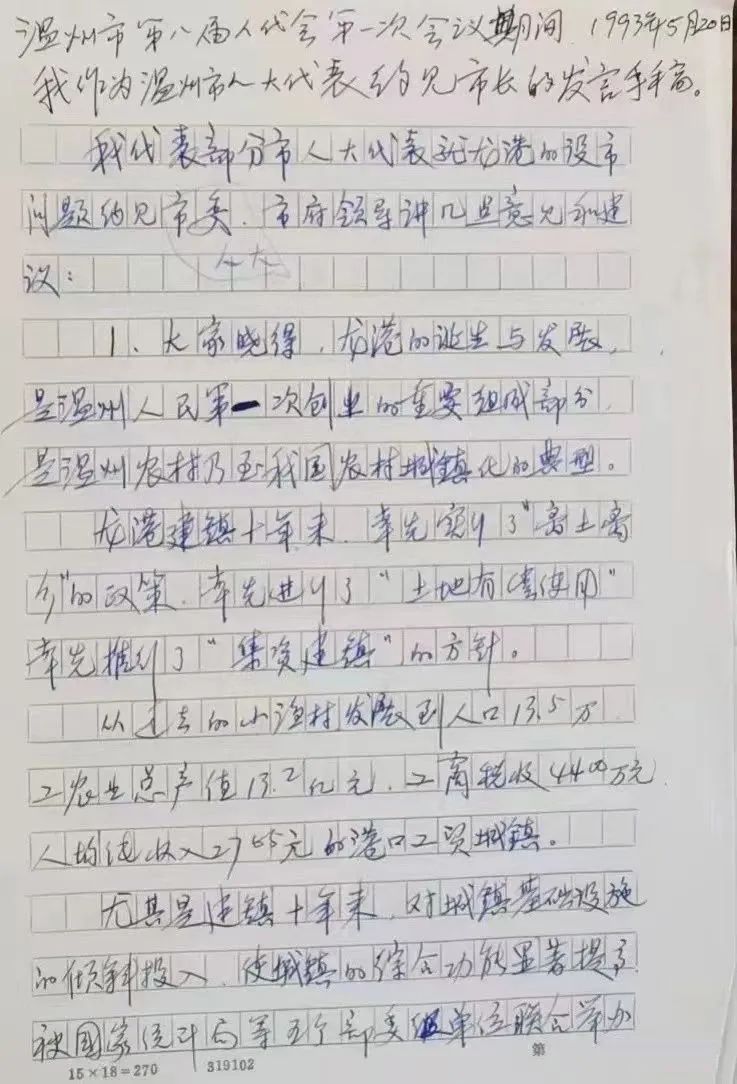 温州市第八届人代会第一次会议期间. 1993年5月20日
我作为温州市人大代表约见市长的发言手稿。
我代表部分市人大代表就龙港的设市
问题约见市委.市府领导讲几点意见和建
议：
1、大家晓得,龙港的诞生与发展,
是温州人民第一次创业的重要组成部分,
是温州农村乃至我国农村城镇化的典型。
龙港建镇十年来.率先实行了"离土离
乡"的政策.率先进行了"土地有偿使用"
率先推行了"集资建镇"的方针。
从过去的小渔村发展到人口13.5万.
工农业总产值13.2亿元.工商税收4400万元
人均纯收入2765元的港口工贸城镇。
尤其是建镇十年来,对城镇基础设施
的倾斜投入.使城镇的综合功能显著提高
被国家统计局等五个部委级单位联合举办
15×18=270 319102 第